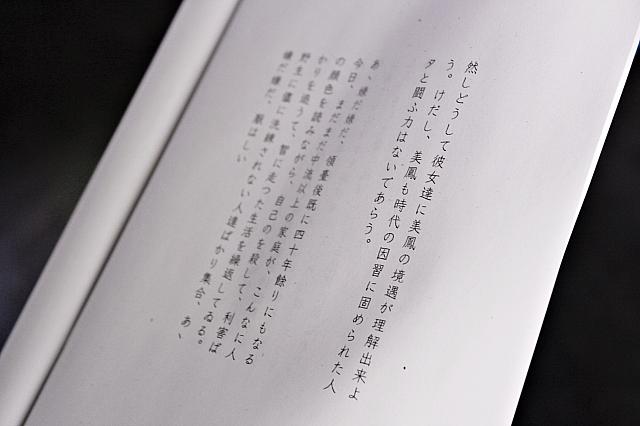 然しどうして彼女達に美鳳の境遇が理解出来よ
う。けだし、美鳳も時代の因習に固められた人
々と闘ふ力はないであらう。
あゝ嫌だ嫌だ、領臺後既に四十年餘りにもなる
今日、まだまだ中流以上の家庭が、こんなに人
の顔色を読みながら、自己のを殺して、利害ば
かりを追うて、智に走つた生活を繰返してゐる。
野生に儘に洗練されない人達ばかり集合、あゝ
嫌だ嫌だ、厭はしい